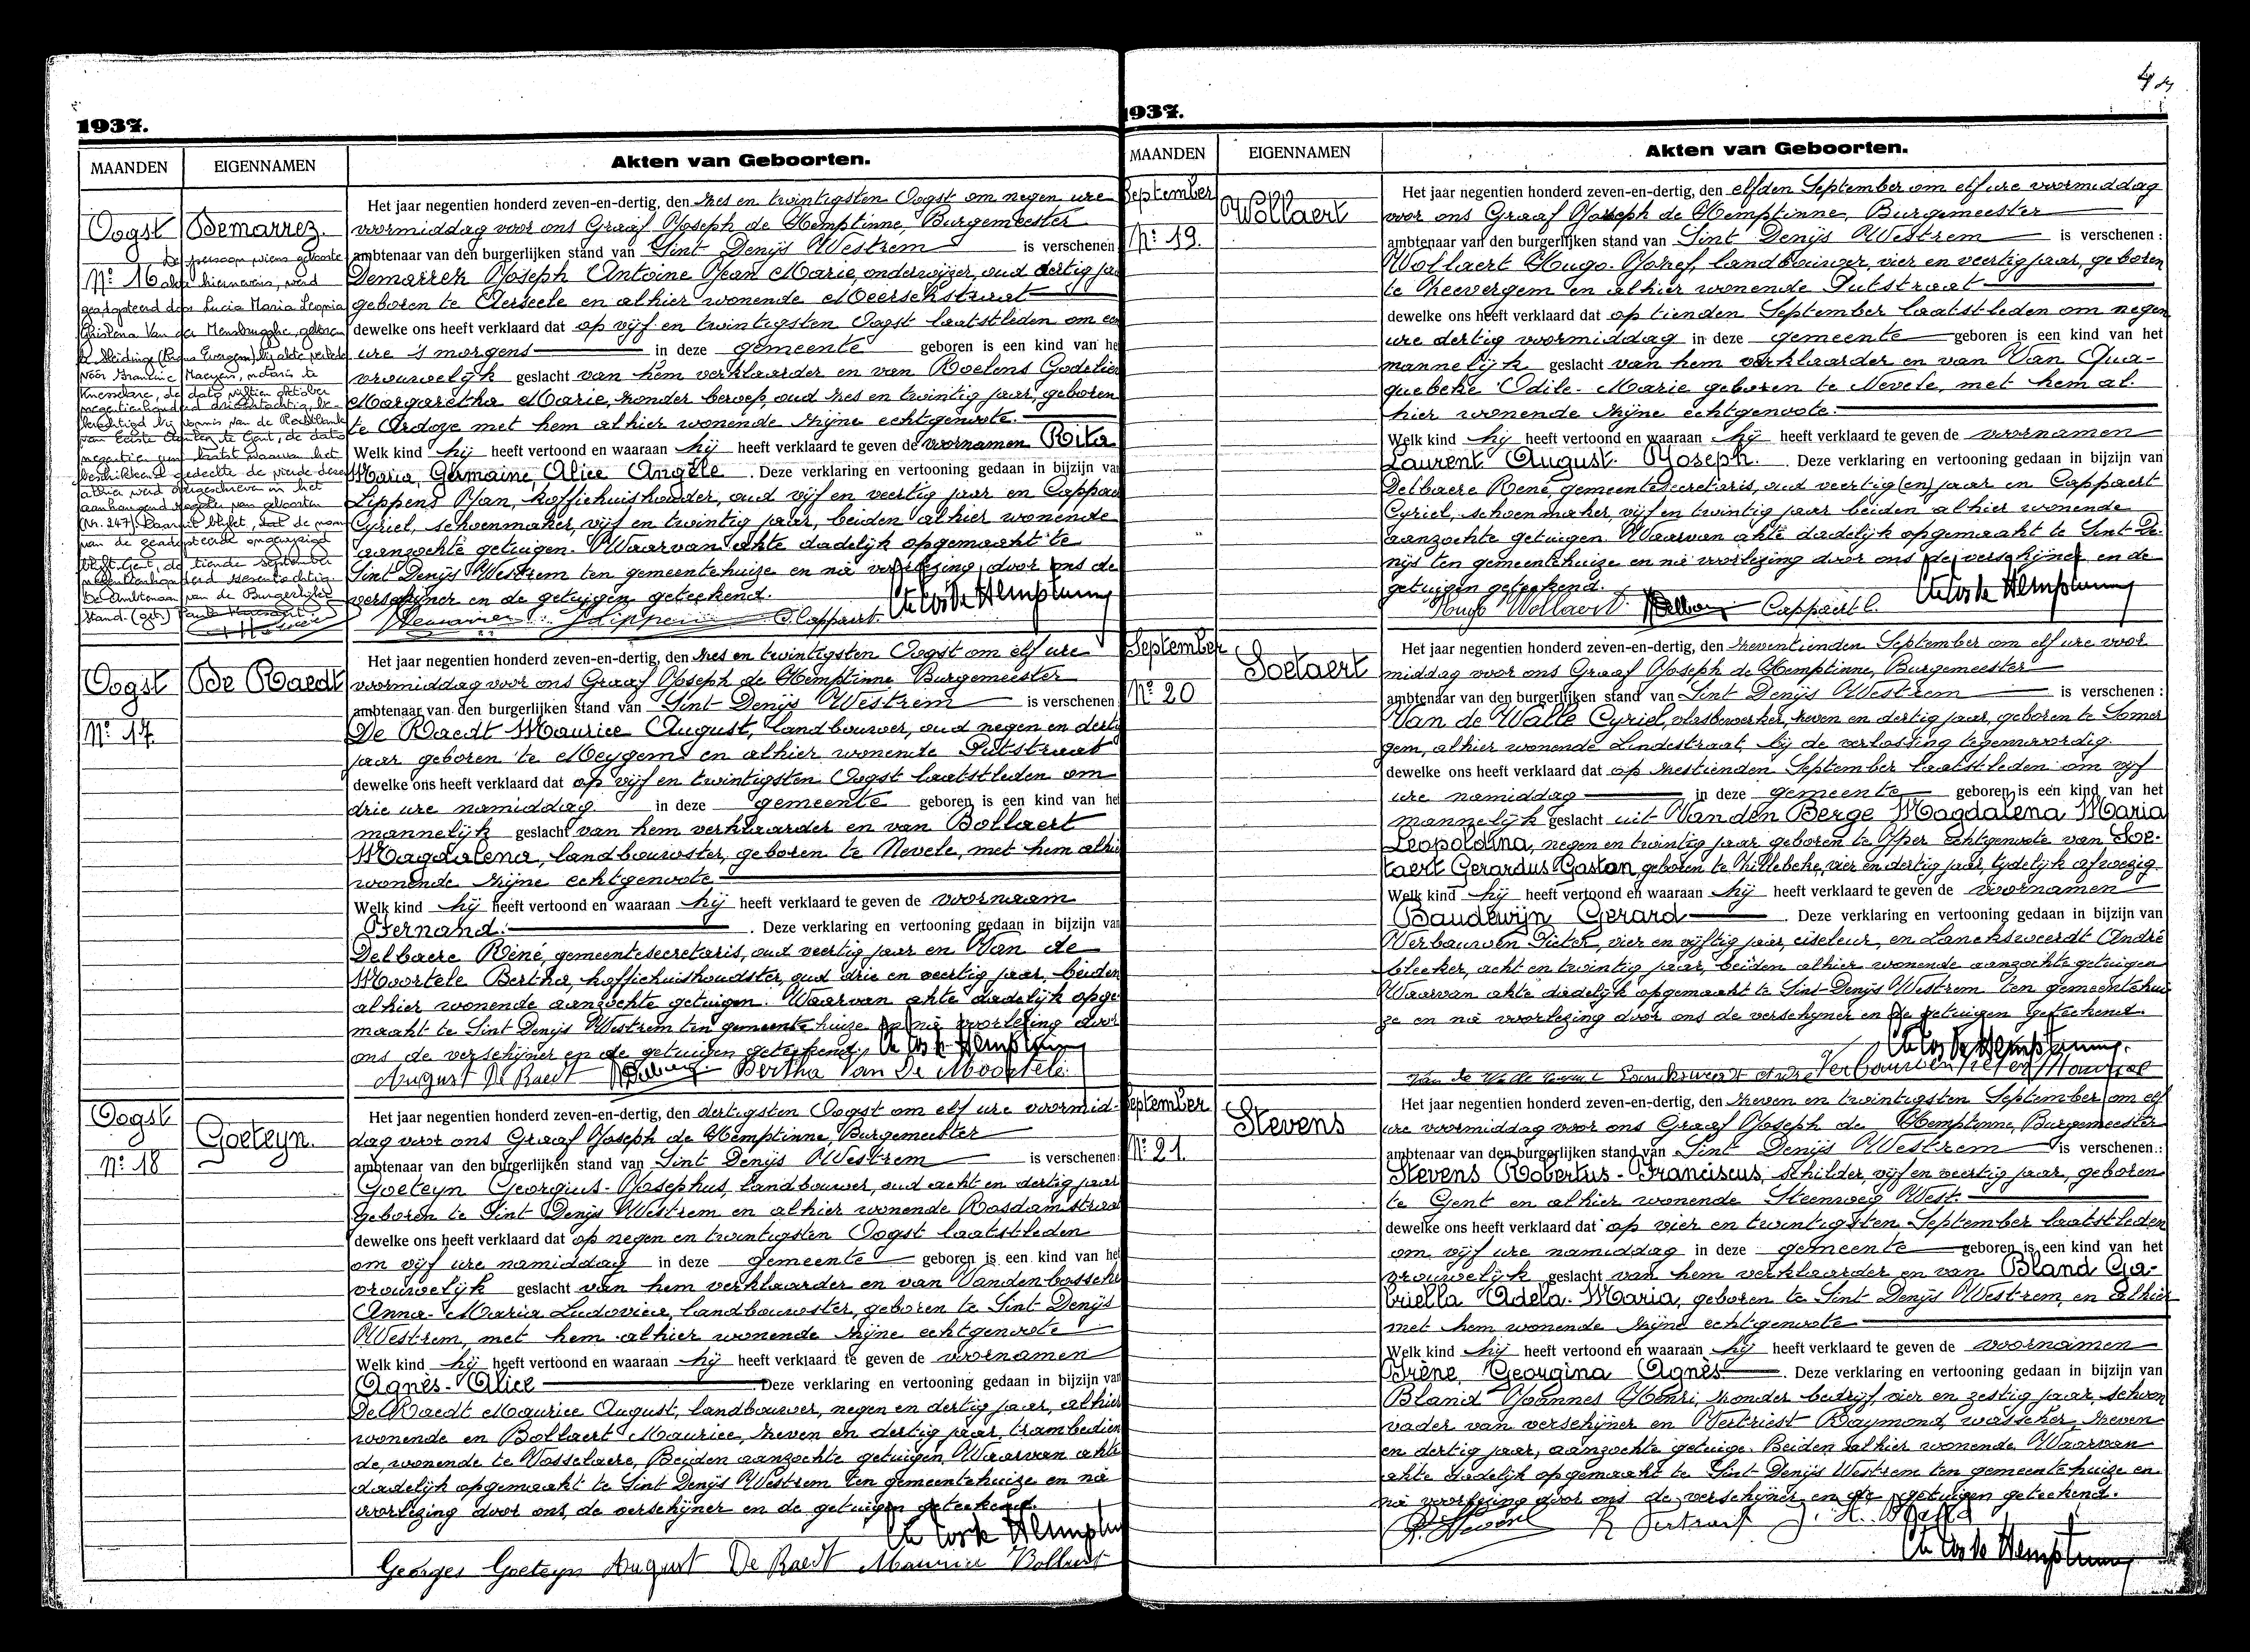 1937.
MAANDEN
EIGENNAMEN
Akten van Geboorten.
Oogst
Demarrez.
De persoon wiens geboorte
Nº 16 akte hiernevens, werd
geadopteerd door Lucia Maria Leonia
Ghislena Van der Mensbrugghe, geboren
te Sleidinge (thans Evergem) bij akte verleden
voor Francine Maeyens, notaris te
Knesselare, de dato vijftien oktober
negentienhonderd drieëntachtig, be-
krachtigd bij vonnis van de Rechtbank
van Eerste Aanleg te Gent, de dato
negentien juni laatst waarvan het
beschikkend gedeelte de vierde dezer
alhier werd overgeschreven in het
aanhangend register van geboorten
(Nr. 247) Daaruit blijkt, dat de naam
van de geadopteerde ongewijzigd
blijft. Gent, de tiende september
negentienhonderd
De Ambtenaar van de Burgerlijke
Stand. (get.)
Het jaar negentien honderd zeven-en-dertig, den zes en twintigsten Oogst om negen ure
voormiddag voor ons Graaf Joseph de Hemptinne, Burgemeester
ambtenaar van den burgerlijken stand van Sint Denijs Westrem is verschenen
Demarrez Joseph Antoine Jean Marie, onderwijzer, oud dertig ja
geboren te Aerseele en alhier wonende Meerschstraat
dewelke ons heeft verklaard dat op vijf en twintigsten Oogst laatstleden om een
ure 's morgens in deze gemeente geboren is een kind van he
vrouwelijk geslacht van hem verklaarder en van Roelens Godelie
Margaretha Marie, zonder beroep, oud zes en twintig jaar, geboren
te Ardoye met hem alhier wonende zijne echtgenoote.
Welk kind hij heeft vertoond en waaraan hij heeft verklaard te geven de voornamen Rita
Maria, Germaine, Alice Angèle. Deze verklaring en vertooning gedaan in bijzijn van
Lippens Jan, koffiehuishouder, oud vijf en veertig jaar en Cappae
Cyriel, schoenmaker, vijf en twintig jaar, beiden alhier wonende
aanzochte getuigen. Waarvan akte dadelijk opgemaakt te
Sint Denijs Westrem ten gemeentehuize en na voorlezing door ons de
verschijner en de getuigen geteekend.
JDemarrez JLippens C. Cappaert. Cte Jos de Hemptinne
Oogst
De Raedt
Nº 17.
Het jaar negentien honderd zeven-en-dertig, den zes en twintigsten Oogst om elf ure
voormiddag voor ons Graaf Joseph de Hemptinne Burgemeester
ambtenaar van den burgerlijken stand van Sint Denijs Westrem is verschenen
De Raedt Maurice August, landbouwer, oud negen en derti
jaar geboren te Meygem en alhier wonende Putstraat
dewelke ons heeft verklaard dat op vijf en twintigsten Oogst laatstleden om
drie ure namiddag in deze gemeente geboren is een kind van het
mannelijk geslacht van hem verklaarder en van Bollaert
Magdalena, landbouwster, geboren te Nevele, met hem alhie
wonende zijne echtgenoote
Welk kind hij heeft vertoond en waaraan hij heeft verklaard te geven de voornaam
Fernand. Deze verklaring en vertooning gedaan in bijzijn van
Delbaere Réné, gemeentesecretaris, oud veertig jaar en Van de
Moortele Bertha, koffiehuishoudster, oud drie en veertig jaar, beiden
alhier wonende aanzochte getuigen. Waarvan akte dadelijk opge
maakt te Sint Denijs Westrem ten gemeente huize en na voorlezing door
ons de verschijner en de getuigen geteekend. Cte Jos de Hemptinne
August De Raedt RDelbaere Bertha Van De Moortele.
Oogst
Goeteyn.
Nº 18
Het jaar negentien honderd zeven-en-dertig, den dertigsten Oogst om elf ure voormid-
dag voor ons Graaf Joseph de Hemptinne Burgemeester
ambtenaar van den burgerlijken stand van Sint Denijs Westrem is verschenen:
Goeteyn Georgius-Josephus, landbouwer, oud acht en dertig jaar
geboren te Sint Denijs Westrem en alhier wonende Rosdamstraat
dewelke ons heeft verklaard dat op negen en twintigsten Oogst laatstleden
om vijf ure namiddag in deze gemeente geboren is een kind van het
vrouwelijk geslacht van hem verklaarder en van Vanden bossche
Anna-Maria Ludovica, landbouwster, geboren te Sint Denijs
Westrem, met hem alhier wonende zijne echtgenoote
Welk kind hij heeft vertoond en waaraan hij heeft verklaard te geven de voornamen
Agnès-Alice Deze verklaring en vertooning gedaan in bijzijn van
De Raedt Maurice August, landbouwer, negen en dertig jaar, alhier
wonende en Bollaert Maurice, zeven en dertig jaar, trambedien
de, wonende te Vosselaere, Beiden aanzochte getuigen. Waarvan akte
dadelijk opgemaakt te Sint Denijs Westrem ten gemeentehuize en na
voorlezing door ons, de verschijner en de getuigen geteekend.
Cte Jos de Hemptinne
Georges Goeteyn August De Raedt Maurice Bollaert
1937.
MAANDEN
EIGENNAMEN
Akten van Geboorten.
September
Wollaert
Nº 19.
Het jaar negentien honderd zeven-en-dertig, den elfden September om elf ure voormiddag
voor ons Graaf Joseph de Hemptinne, Burgemeester
ambtenaar van den burgerlijken stand van Sint Denijs Westrem is verschenen:
Wollaert Hugo. Jozef, landbouwer, vier en veertig jaar, geboren
te Zeevergem en alhier wonende Putstraat
dewelke ons heeft verklaard dat op tienden September laatstleden om negen
ure dertig voormiddag in deze gemeente geboren is een kind van het
mannelijk geslacht van hem verklaarder en van Van Qua-
quebeke Odile-Marie geboren te Nevele, met hem al-
hier wonende zijne echtgenoote.
Welk kind hij heeft vertoond en waaraan hij heeft verklaard te geven de voornamen
Laurent August. Joseph. Deze verklaring en vertooning gedaan in bijzijn van
Delbaere René, gemeentesecretaris, oud veertig (en) jaar en Cappaert
Cyriel, schoenmaker, vijf en twintig jaar beiden alhier wonende
aanzochte getuigen. Waarvan akte dadelijk opgemaakt te Sint De-
nijs ten gemeentehuize en na voorlezing door ons de verschijner en de
getuigen geteekend.
Hugo Wollaert. RDelbaere Cappaert C. Cte Jos de Hemptinne
September
Soetaert
Nº 20
Het jaar negentien honderd zeven-en-dertig, den zeventienden September om elf ure voor
middag voor ons Graaf Joseph de Hemptinne, Burgemeester
ambtenaar van den burgerlijken stand van Sint Denijs Westrem is verschenen:
Van de Walle Cyriel, vlasbewerker, zeven en dertig jaar, geboren te Somer
gem, alhier wonende Lindestraat, bij de verlossing tegenwoordig.
dewelke ons heeft verklaard dat op zestienden September laatstleden om vijf
ure namiddag in deze gemeente geboren is een kind van het
mannelijk geslacht uit Vanden Berge Magdalena Maria
Leopoldina, negen en twintig jaar geboren te Yper echtgenoote van Soe-
taert Gerardus Gaston, geboren te Zillebeke, vier en dertig jaar, tijdelijk afwezig.
Welk kind hij heeft vertoond en waaraan hij heeft verklaard te geven de voornamen
Baudewijn Gerard. Deze verklaring en vertooning gedaan in bijzijn van
Verbauwen Pieter, vier en vijftig jaar, ciseleur, en Lancksweerdt André
bleeker, acht en twintig jaar, beiden alhier wonende aanzochte getuigen
Waarvan akte dadelijk opgemaakt te Sint Denijs Westrem ten gemeentehui
ze en na voorlezing door ons de verschijner en de getuigen geteekend.
Cte Jos de Hemptinne.
Van de Walle Cyriel Lancksweerdt André Verbauwen Pieter
September
Stevens
Nº 21.
Het jaar negentien honderd zeven-en-dertig, den zeven en twintigsten September om elf
ure voormiddag voor ons Graaf Joseph de Hemptinne, Burgemeester
ambtenaar van den burgerlijken stand van Sint Denijs Westrem is verschenen:
Stevens Robertus-Franciscus, schilder, vijf en veertig jaar, geboren
te Gent en alhier wonende Steenweg West.
dewelke ons heeft verklaard dat op vier en twintigsten September laatstleden
om vijf ure namiddag in deze gemeente geboren is een kind van het
vrouwelijk geslacht van hem verklaarder en van Bland Ga-
briella Adela-Maria, geboren te Sint Denijs Westrem, en alhier
met hem wonende zijne echtgenoote
Welk kind hij heeft vertoond en waaraan hij heeft verklaard te geven de voornamen
Irène, Georgina Agnès. Deze verklaring en vertooning gedaan in bijzijn van
Bland Joannes Henri, zonder bedrijf, vier en zestig jaar, schoon
vader van verschijner en Vertriest Raymond, wasscher, zeven
en dertig jaar, aanzochte getuige. Beiden alhier wonende. Waarvan
akte dadelijk opgemaakt te Sint Denijs Westrem ten gemeentehuize en
na voorlezing door ons de verschijner en de getuigen geteekend.
R. Stevens R Vertriest J. H. Bland
Cte Jos de Hemptinne